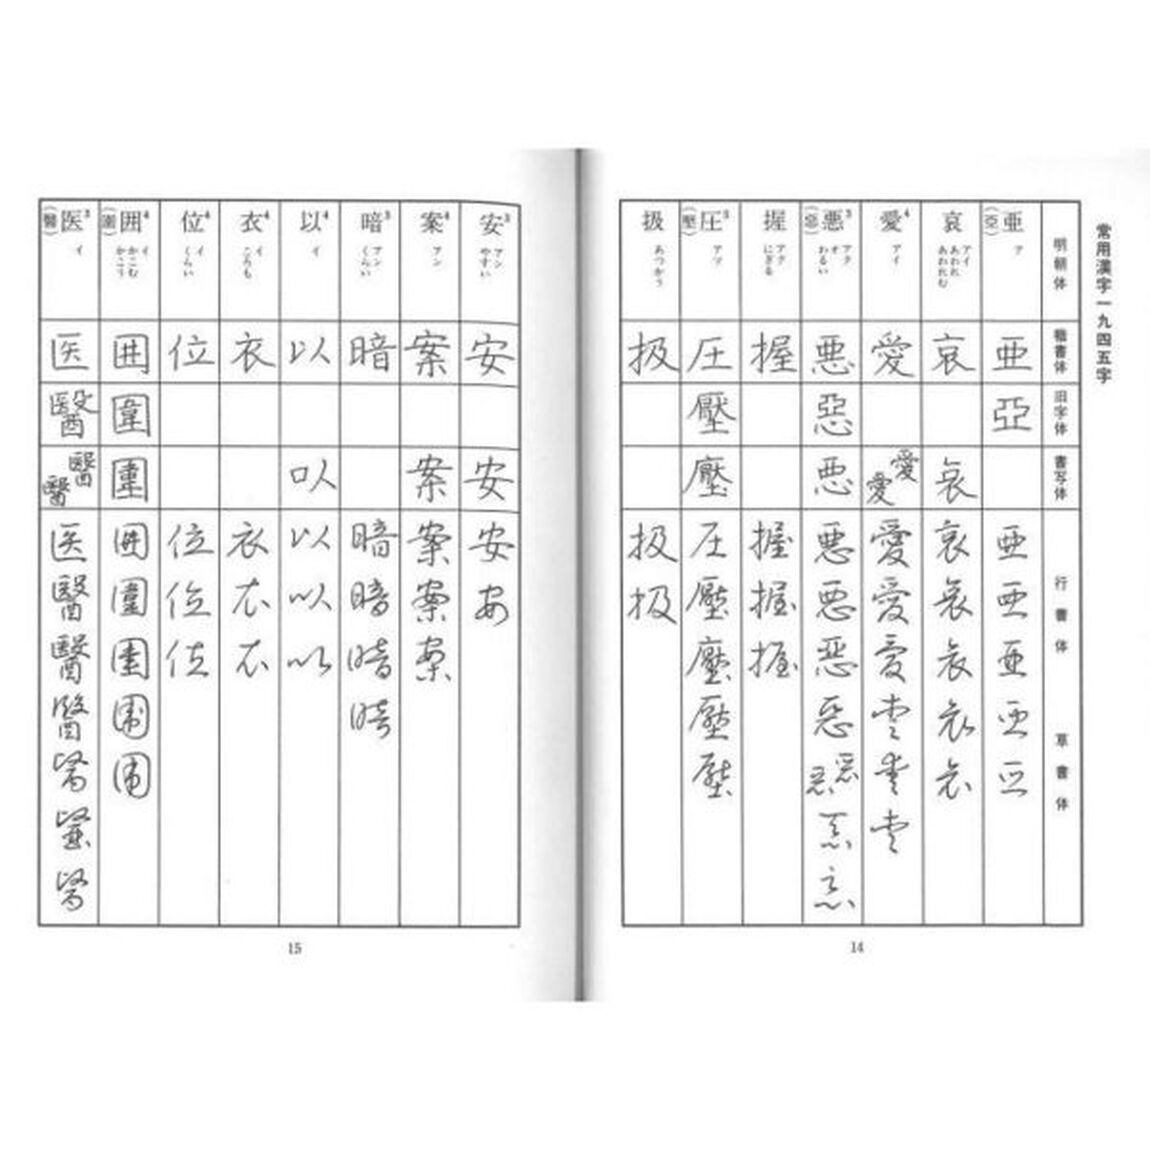 常用漢字一九四五字
明朝体
楷書体
旧字体
書写体
行書体
草書体
亜
(亞)
ア
亜
亞
亜
亜
亜
亜
亜
哀
アイ
あわれ
あわれむ
哀
哀
哀
哀
哀
哀
哀
愛4
アイ
愛
愛
愛
愛
愛
愛
愛
愛
愛
愛
悪3
(惡)
アク
オ
わるい
悪
惡
悪
悪
悪
悪
悪
悪
悪
悪
悪
握
アク
にぎる
握
握
握
握
圧5
(壓)
アツ
圧
壓
壓
圧
壓
壓
壓
壓
扱
あつかう
扱
扱
扱
14
安3
アン
やすい
安
安
安
安
案4
アン
案
案
案
案
案
暗3
アン
くらい
暗
暗
暗
暗
暗
以4
イ
以
以
以
以
以
衣4
イ
ころも
衣
衣
衣
衣
位4
イ
くらい
位
位
位
位
囲4
(圍)
イ
かこむ
かこう
囲
圍
圍
囲
圍
圍
圍
圍
医3
(醫)
イ
医
醫
醫
醫
医
醫
醫
醫
醫
醫
醫
15